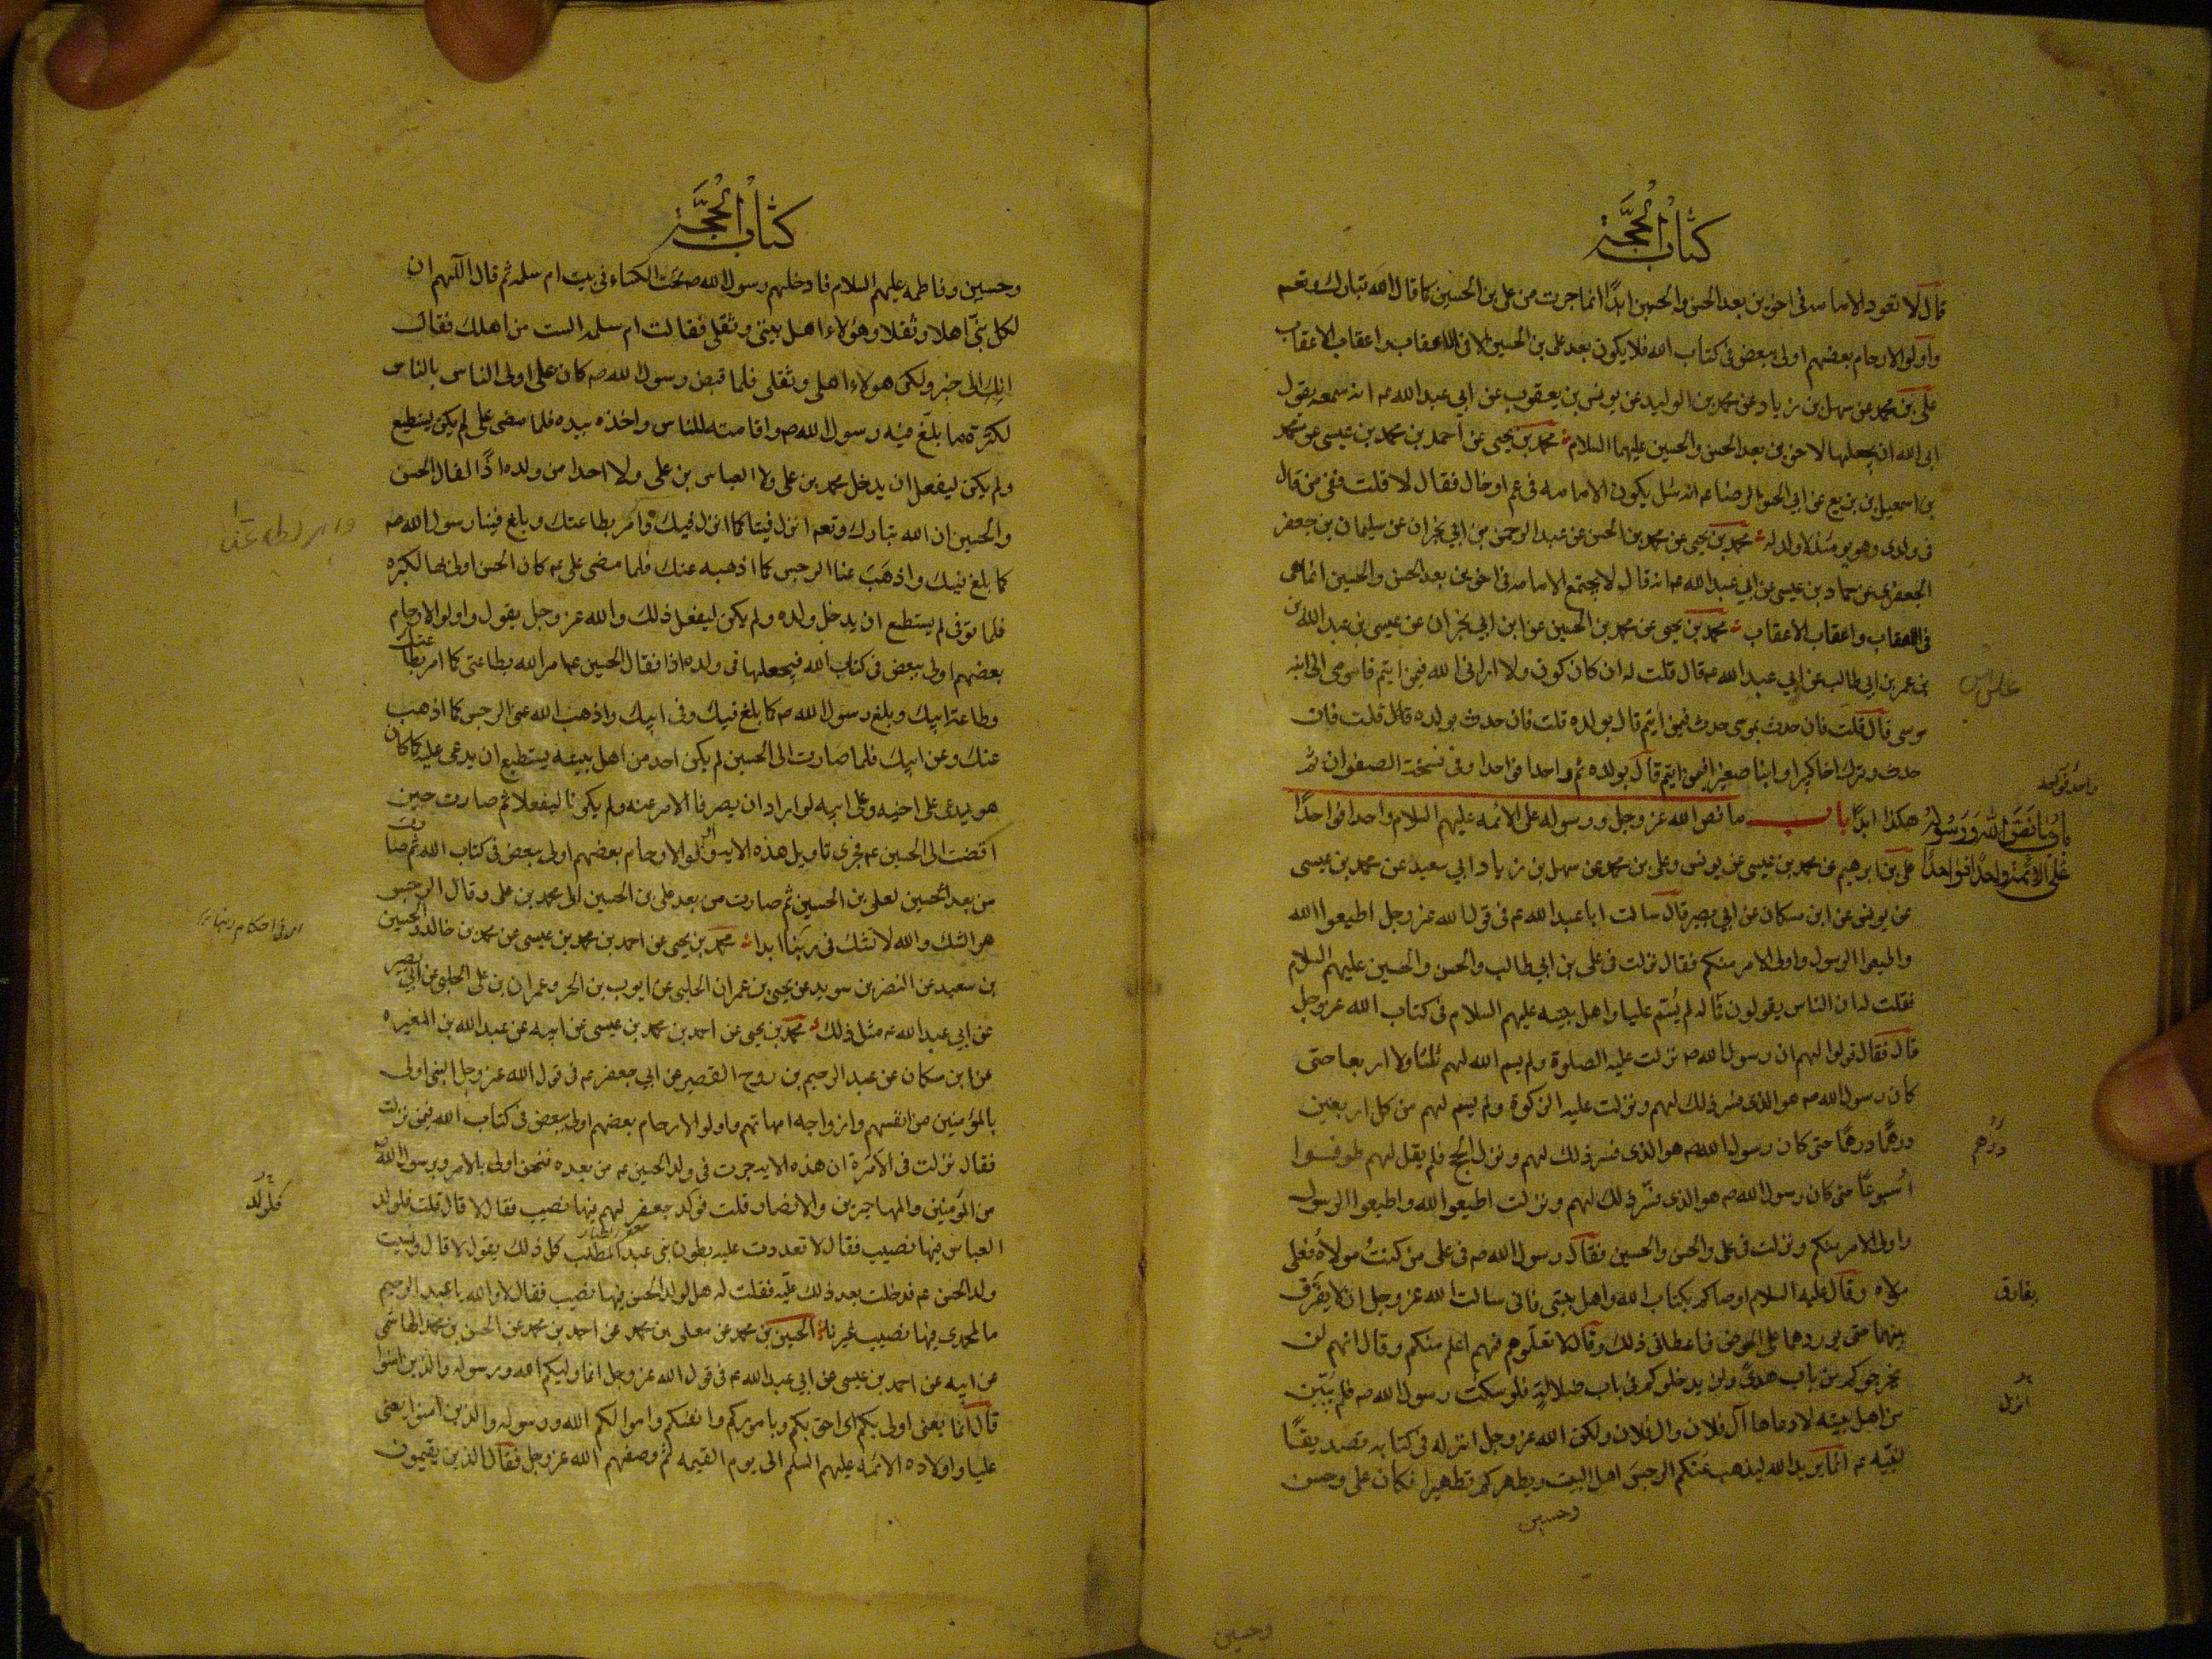 كتاب الحجة
قال لا تعود الامامه فى اخوين بعد الحسن والحسين ابدا انما جرت من على بن الحسين كما قال الله تبارك وتعم
واولو الارحام بعضهم اولى ببعض فى كتاب الله فلا يكون بعد على بن الحسين الا فى الاعقاب واعقاب الاعقاب
على بن محمد عن سهل بن زياد عن محمد بن الوليد عن يونس بن يعقوب عن ابي عبد الله عم انه سمعه يقول
ابى الله ان يجعلها لاخوين بعد الحسن والحسين عليهما السلام محمد بن يحيى عن احمد بن محمد بن عيسى عن محمد
بن اسمعيل بن بزيع عن ابي الحسن الرضا عم انه سئل يكون الامامه فى عم او خال فقال لا قلت ففى من قال
فى ولدى وهو يومئذ لا ولد له محمد بن يحيى عن محمد بن الحسن عن عبد الرحمن بن ابي نجران عن سليمان بن جعفر
الجعفرى عن حماد بن عيسى عن ابي عبد الله عم انه قال لا يجتمع الامامه فى اخوين بعد الحسن والحسين انما هى
فى الاعقاب واعقاب الاعقاب محمد بن يحيى عن محمد بن الحسين عن ابن ابي نجران عن عيسى بن عبد الله بن
بن عمر بن ابي طالب عن ابي عبد الله عم قال قلت له ان كان كون ولا ارانى الله فبمن ايتم فاومى الى ابنه
على بن
موسى قال قلت فان حدث بموسى حدث فبمن ايتم قال بولده قلت فان حدث بولده قال قلت فان
حدث وترك اخا كبيرا وابنا صغيرا فبمن ايتم قال بولده ثم واحدا فواحدا وفى نسخة الصفوانى ثم
واحد فواحد
هكذا ابدا باب ما نص الله عز وجل ورسوله على الائمه عليهم السلام واحدا فواحدا
باب ما نص الله ورسوله
على الائمة واحدا فواحدا
على بن ابرهيم عن محمد بن عيسى عن يونس وعلى بن محمد عن سهل بن زياد ابي سعيد عن محمد بن عيسى
عن يونس عن ابن مسكان عن ابي بصير قال سالت ابا عبد الله عم فى قول الله عز وجل اطيعوا الله
واطيعوا الرسول واولى الامر منكم فقال نزلت فى على بن ابي طالب والحسن والحسين عليهم السلام
فقلت له ان الناس يقولون فما له لم يُسَّم عليا واهل بيته عليهم السلام فى كتاب الله عز وجل
قال فقال قولوا لهم ان رسول الله ص نزلت عليه الصلوة ولم يسم الله لهم ثلثا ولا اربعا حتى
كان رسول الله ص هو الذى فسر ذلك لهم ونزلت عليه الزكوة ولم يسم لهم من كل اربعين
درهما درهما حتى كان رسول الله ص هو الذى فسر ذلك لهم ونزل الحج فلم يقل لهم طوفوا
درهم
اسبوعا حتى كان رسول الله ص هو الذى فسر ذلك لهم ونزلت اطيعوا الله واطيعوا الرسول
واولى الامر منكم ونزلت فى على والحسن والحسين فقال رسول الله ص فى على من كنت مولاه فعلى
مولاه وقال عليه السلام اوصيكم بكتاب الله واهل بيتى فانى سالت الله عز وجل ان لا يفرق
يفارق
بينهما حتى يوردهما على الحوض فاعطانى ذلك وقال لا تعلموهم فهم اعلم منكم وقال انهم لن
يخرجوكم من باب هدى ولن يدخلوكم فى باب ضلالة فلو سكت رسول الله ص فلم يبين
من اهل بيته لادعاها آل فلان وال فلان ولكن الله عز وجل انزله فى كتابه تصديقا
انزل
لنبيه عم انما يريد الله ليذهب عنكم الرجس اهل البيت ويطهركم تطهيرا فكان على وحسن
وحسين
وحسين
كتاب الحجة
وحسين وفاطمه عليهم السلام فادخلهم رسول الله ص تحت الكساء فى بيت ام سلمه ثم قال اللهم ان
لكل نبى اهلا وثقلا وهؤلاء اهل بيتى وثقلى فقالت ام سلمه الست من اهلك فقال
انك الى خير ولكن هولاء اهلى وثقلى فلما قبض رسول الله ص كان على اولى الناس بالناس
لكثرة ما بلغ فيه رسول الله ص واقامته للناس واخذه بيده فلما مضى على لم يكن يستطيع
ولم يكن ليفعل ان يدخل محمد بن على ولا العباس بن على ولا احدا من ولده اذا لقال الحسن
والحسين ان الله تبارك وتعم انزل فينا كما انزل فيك وامر بطاعتك وبلغ فينا رسول الله ص
كما بلغ فيك واذهب عنا الرجس كما اذهبه عنك فلما مضى على عم كان الحسن اولى بها لكبره
فلما توفى لم يستطع ان يدخل ولده ولم يكن ليفعل ذلك والله عز وجل يقول واولو الارحام
بعضهم اولى ببعض فى كتاب الله فيجعلها فى ولده اذا فقال الحسين عم امر الله بطاعتى كما امر بطاعتك
وطاعة ابيك وبلغ رسول الله ص كما بلغ فيك وفى ابيك واذهب الله عنى الرجس كما اذهب
عنك وعن ابيك فلما صارت الى الحسين لم يكن احد من اهل بيته يستطيع ان يدعى عليه كما كان
هو يدعى على اخيه وعلى ابيه لو ارادا ان يصرفا الامر عنه ولم يكونا ليفعلا ثم صارت حين
افضت الى الحسين عم فجرى تاويل هذه الايه واولو الارحام بعضهم اولى ببعض فى كتاب الله ثم صارت
من بعد الحسين لعلى بن الحسين ثم صارت من بعد على بن الحسين الى محمد بن على وقال الرجس
هو الشك والله لا نشك فى ربنا ابدا محمد بن يحيى عن احمد بن محمد بن عيسى عن محمد بن خالد والحسين
بن سعيد عن النضر بن سويد عن يحيى بن عمران الحلبى عن ايوب بن الحر وعمران بن على الحلبى عن ابي بصير
عن ابي عبد الله عم مثل ذلك محمد بن يحيى عن احمد بن محمد بن عيسى عن ابيه عن عبد الله بن المغيره
عن ابن مسكان عن عبد الرحيم بن روح القصير عن ابي جعفر عم فى قول الله عز وجل النبى اولى
بالمؤمنين من انفسهم وازواجه امهاتهم واولو الارحام بعضهم اولى ببعض فى كتاب الله فيمن نزلت
فقال نزلت فى الامرة ان هذه الايه جرت فى ولد الحسين عم من بعده فنحن اولى بالامر وبرسول الله
من المؤمنين والمهاجرين والانصار قلت فولد جعفر لهم فيها نصيب فقال لا قال قلت فلولد
فلولد
العباس فيها نصيب فقال لا تعددت عليه بطون بنى عبد المطلب كل ذلك يقول لا قال ونسيت
ولد الحسن عم فدخلت بعد ذلك عليه فقلت له هل لولد الحسن فيها نصيب فقال لا والله يا عبد الرحيم
ما لمحمدى فيها نصيب غيرنا الحسين بن محمد عن معلى بن محمد عن احمد بن محمد عن الحسن بن محمد الهاشمى
عن ابيه عن احمد بن عيسى عن ابي عبد الله عم فى قول الله عز وجل انما وليكم الله ورسوله والذين امنوا
قال انما يعنى اولى بكم اى احق بكم وباموركم وانفسكم واموالكم الله ورسوله والذين امنوا يعنى
عليا واولاده الائمه عليهم السلم الى يوم القيمه ثم وصفهم الله عز وجل فقال الذين يقيمون